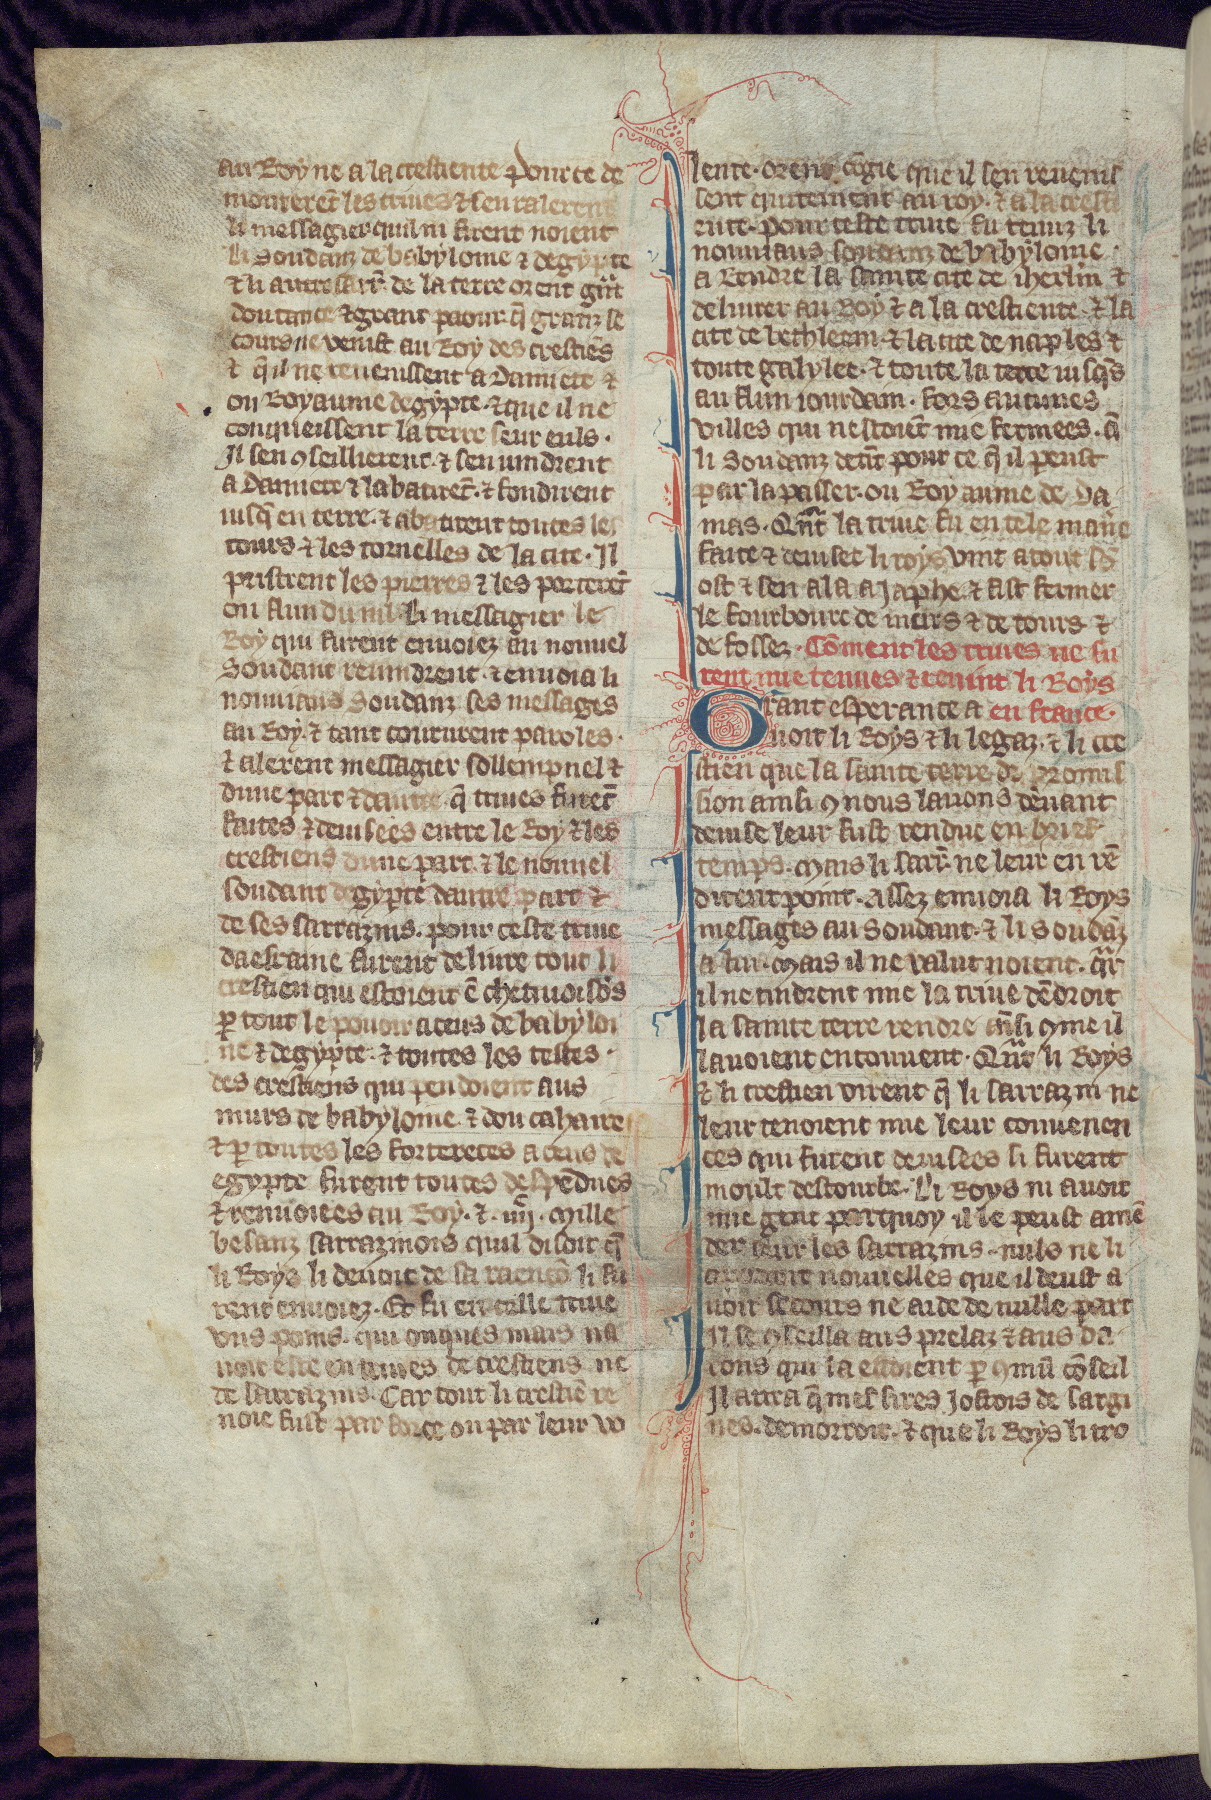 au Roy ne a la crestiente pour ce de
mourerēt les triues ⁊ sen ralerent
li messagier quil ni firent noient
li soudanz de babyloine ⁊ degypte
⁊ li autre sarr̄. de la terre orent gūt
doutance ⁊ grant paour. q̄ granz se
cours ne venist au Roy des crestiēs
⁊ q̄ il ne reuenissent a Damiete ⁊
ou Royaume degypte. ⁊ que il ne
conqueissent la terre seur euls.
Il sen ꝯseillierent. ⁊ sen uindrent
a Damiete ⁊ labatirēt. ⁊ fondirent
iusq̄ en terre. ⁊ abatirent toutes les
tours ⁊ les tornelles de la cite. Il
pristrent les pierres ⁊ les porterēt
ou flun du nil. li messagier le
Roy qui furent enuoiez au nouuel
Soudant reuindrent. ⁊ enuoia li
nouuiaus Soudanz ses messages
au Roy. ⁊ tant coururent paroles.
⁊ alerent messagier sollempnel ⁊
dune part ⁊ dautre. q̄ triues furēt
faites ⁊ deuisees entre le Roy ⁊ les
crestiens dune part. ⁊ le nouuel
soudant degypte dautre part ⁊
de ses sarrazins. pour ceste triue
daestraine furent deliure tout li
crestien qui estoient ē chetiuoisōs
ꝑ tout le pouoir a ceus de babyloi
ne ⁊ degypte. ⁊ toutes les testes.
des crestiens qui pendoient aus
murs de babyloine. ⁊ dou cahaire
⁊ ꝑ toutes les fortereces a ceus de
egypte furent toutes despēdues
⁊ renuoiees au Roy. ⁊ .iiij. Mille
besanz sarrazinois quil disoit q̄
li Roys li deuoit de sa raencō li fu
rent enuoiez. Et fu en celle triue
vns poins. qui onques mais na
uoit este en triues de crestiens ne
de sarrazins. Car tout li crestiē re
noie fust par force ou par leur vo
lente. orent cōgie que il sen reuenis
sent quitement au roy. ⁊ a la cresti
ente. pour ceste triue fu tenuz li
nouuiaus soudanz de babyloine.
a Rendre la sainte cite de iherl̄m ⁊
deliurer au Roy ⁊ a la crestiente. ⁊ la
cite de bethleem. ⁊ la cite de naples ⁊
toute galylee. ⁊ toute la terre iusq̄s
au flun iourdain. fors aucunes
villes qui nestoiēt mie fermees. q̄
li Soudanz detīt pour ce q̄ il peust
par la passer. ou Royaume de Da
mas. Qn̄t la triue fu en tele maīie
faite ⁊ deuisee li roys vint a tout sō
ost ⁊ sen ala a Japhe. ⁊ fist fermer
le fourbourc de murs ⁊ de tours ⁊
de fossez. Cōment les triues ne fu
rent mie tenues ⁊ reuint li Roys
Grant esperance a en france.
uoit li Roys ⁊ li legaz. ⁊ li cre
stien que la sainte terre de promis
sion ainsi ꝯ nous lauons deuant
deuise leur fust rendue en brief
temps. Mais li sarr̄. ne leur en rē
dirent point. Assez enuoia li Roys
messages au Soudant. ⁊ li soudāz
a lui. Mais il ne valut noient. q̄r
il ne tindrent mie la triue dēdroit
la sainte terre rendre ainsi ꝯme il
lauoient en conuent. Qn̄t li Roys
⁊ li crestien virent q̄ li sarrazin ne
leur tenoient mie leur conuenen
ces qui furent deuisees si furent
moult destourbe. Li Roys ni auoit
mie gent porquoy il le peust amē
der seur les sarrazins. nuls ne li
aportoit nouuelles que il deust a
uoir secours ne aide de nulle part
Il se ꝯseilla aus prelaz ⁊ aus ba
rons qui la estoient ꝑ ꝯmū cōseil
Il atira q̄ mes sires Jofrois de sargi
nes. demorroit. ⁊ que li Roys li tro